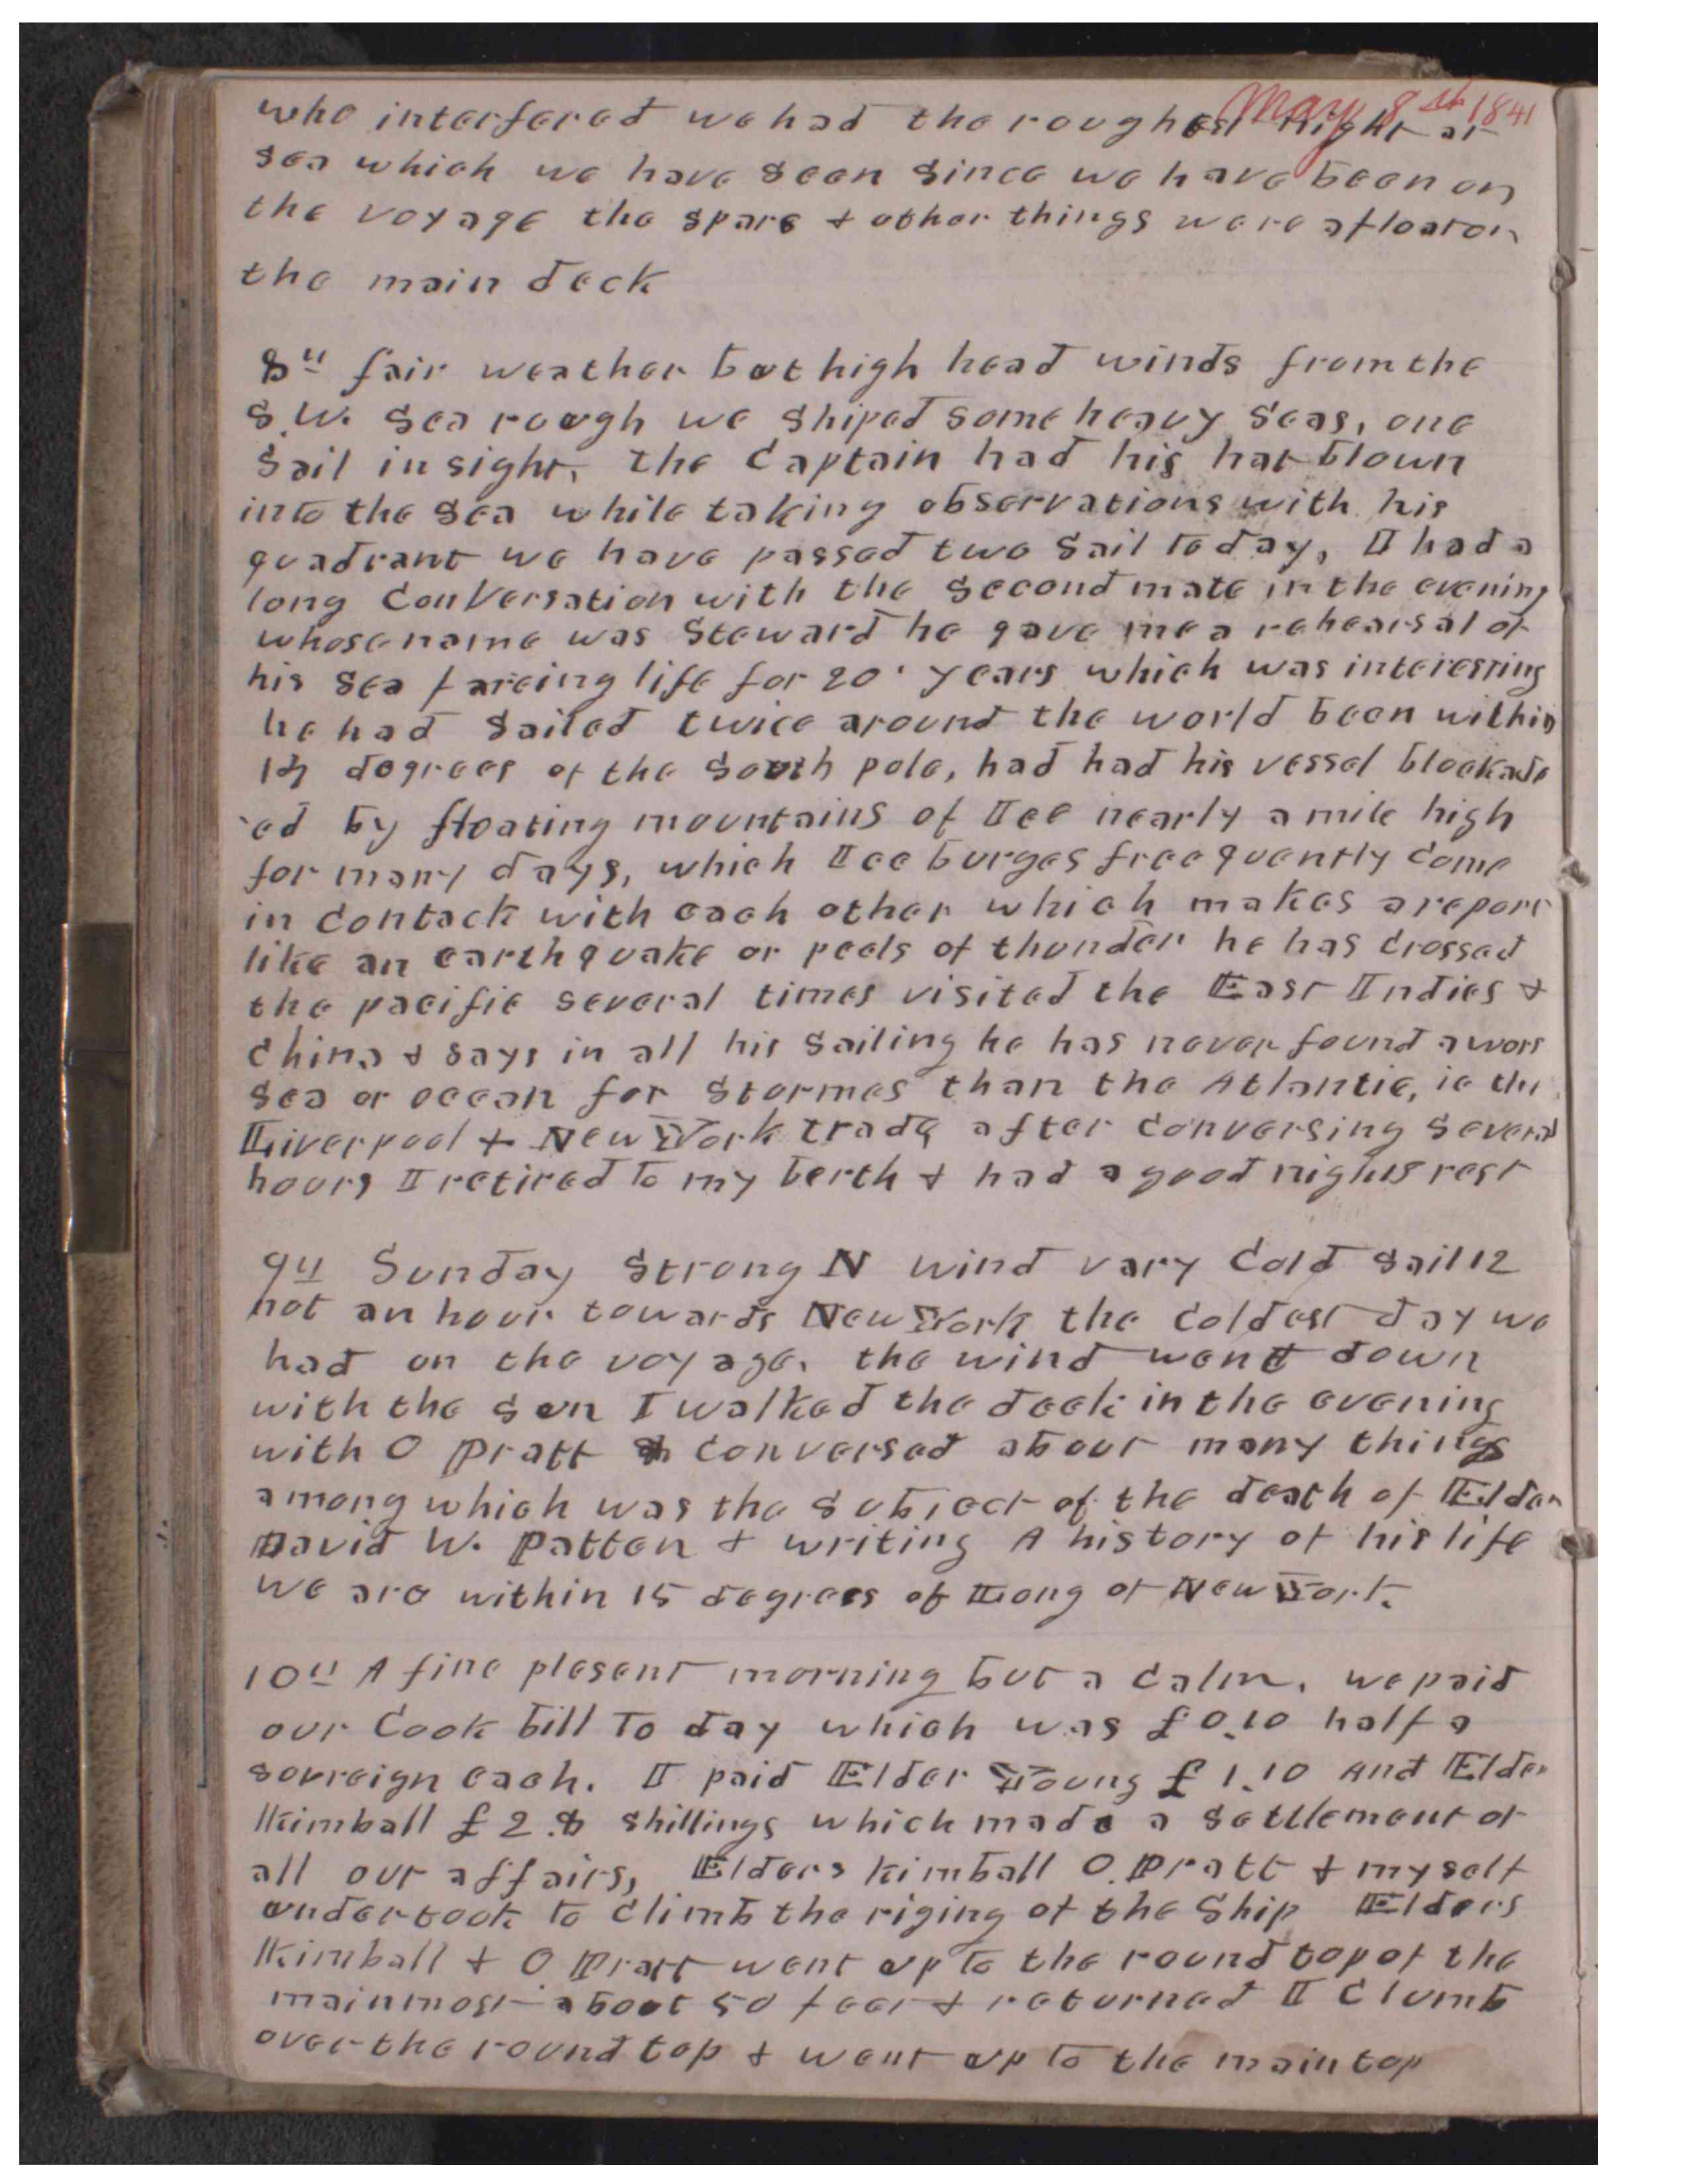 May 8th 1841
who interfered we had the roughest night at
sea which we have seen since we have been on
the voyage the spars & other things were afloat on
the main deck
8th fair weather but high head winds from the
S.W. Sea rough we shiped some heavy seas, one
Sail in sight, the Captain had his hat blown
into the Sea while taking observations with his
quadrant we have passed two Sail to day, I had a
long Conversation with the Second mate in the evening
whose name was Steward he gave me a rehearsal of
his Sea fareing life for 20 years which was interesting
he had Sailed twice around the world been within
degrees of the South pole, had had his vessel blockade
ed by floating mountains of Ice nearly a mile high
for many days, which Ice burges freequently come
in Contack with each other which makes a report
like an earthquake or peels of thunder he has Crossed
the pacific several times visited the East Indies &
China & says in all his Sailing he has never found a wors
Sea or ocean for Stormes than the Atlantic, ie the
Liverpool & New York trade after Conversing Several
hours I retired to my berth & had a good nights rest
9th Sunday Strong N wind vary Cold Sail 12
not an hour towards New York the Coldest day we
had on the voyage. the wind went down
with the Sun I walked the deck in the evening
with O Pratt & Conversed about many things
among which was the Subject of the death of Elder
David W. Patten & writing A history of his life
we are within 15 degrees of Long of New York.
10th A fine plesent morning but a Calm. we paid
our Cook bill To day which was £0.10 half a
sovreign each. I paid Elder Young £1.10 And Elder
Kimball £2.8 shillings which made a Settlement of
all our affairs, Elders Kimball O. Pratt & myself
undertook to Climb the riging of the Ship Elders
Kimball & O Pratt went up to the round top of the
mainmost about 50 feet & returned I Clumb
over the round top & went up to the main top